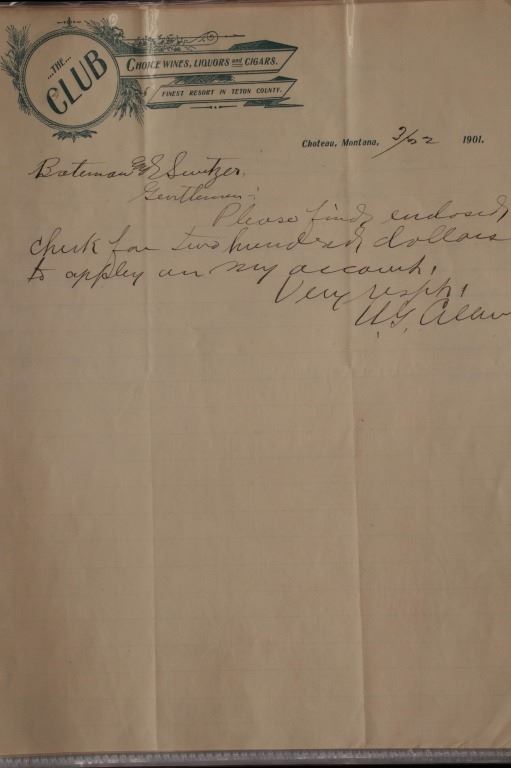 ...THE...
CLUB
CHOICE WINES, LIQUORS and CIGARS.
FINEST RESORT IN TETON COUNTY.
Choteau, Montana, 3/22 1901.
Bateman & Switzer,
Gentlemen;
Please find enclosed
check for two hundred dollars
to appley on my account.
Very respt.
U.G.